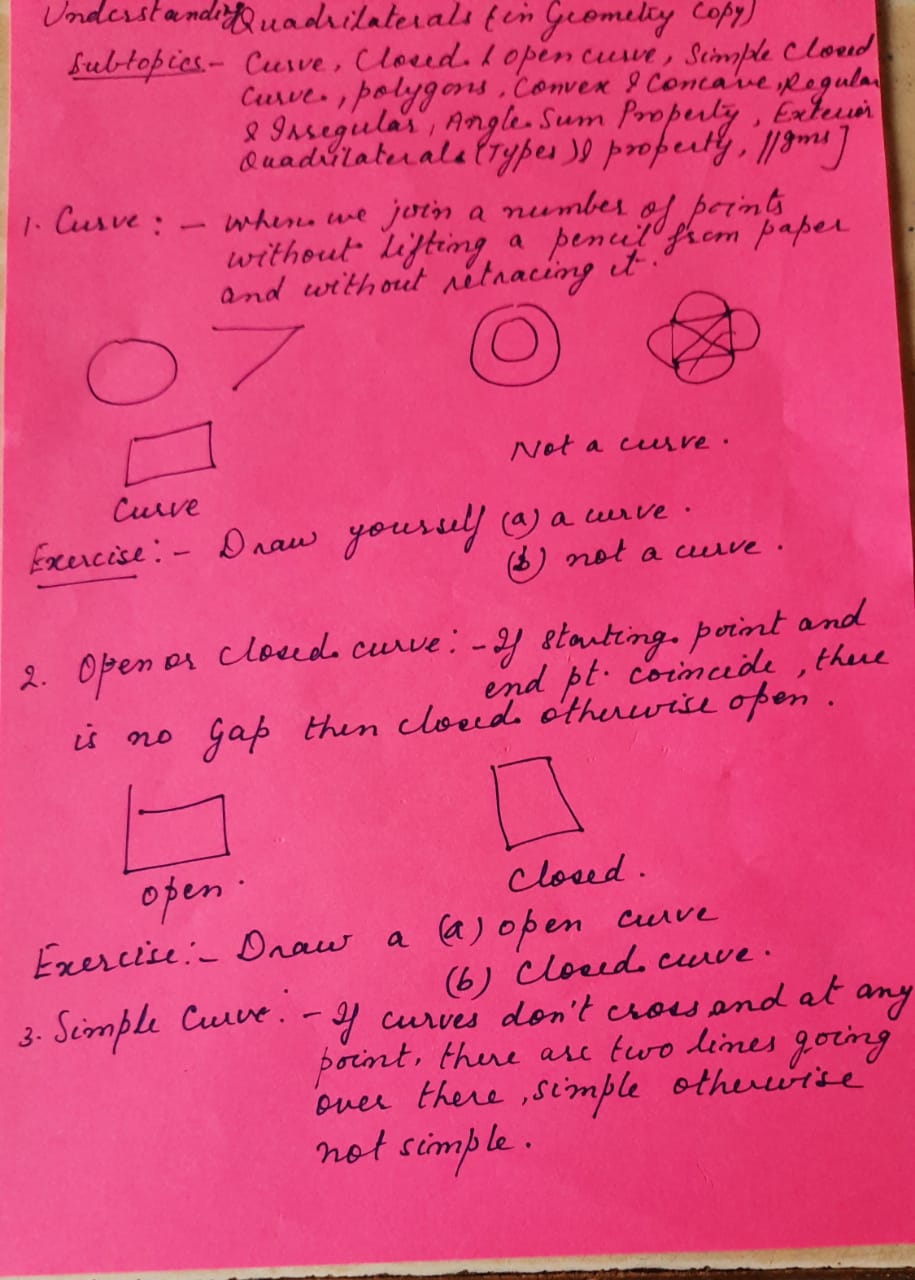 Understanding Quadrilaterals (in Geometry Copy)
Subtopics - Curve, Closed & open curve, Simple Closed
curve, polygons, Convex & Concave, Regular
& Irregular, Angle Sum Property, Exterior
Quadrilaterals (Types) & property, ||gms]
1. Curve : - when we join a number of points
without lifting a pencil from paper
and without retracing it.
Not a curve.
Curve
Exercise :- Draw yourself (a) a curve.
(b) not a curve.
2. Open or closed curve : - If starting point and
end pt. coincide, there
is no gap then closed otherwise open.
open.
Closed.
Exercise :- Draw a (a) open curve
(b) Closed curve.
3. Simple Curve : - If curves don't cross and at any
point, there are two lines going
over there, simple otherwise
not simple.